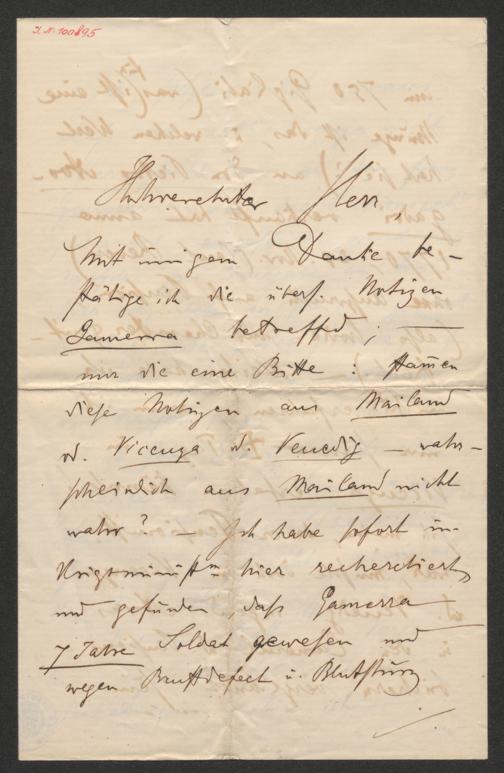 I.N. 100895
Hochverehrter Herr,
Mit innigem Danke be-
stätige ich die übers. Notizen
Gamerra betreffd; —
nur die eine Bitte: stam̄en
diese Notizen aus Mailand
od. Vicenza od. Venedig — wahr-
scheinlich aus Mailand nicht
wahr? — Ich habe sofort im
Kriegsminist^m hier recherchiert,
und gefunden, daß Gamerra
7 Jahre Soldat gewesen und
wegen Brustdefect u. Blutsturz